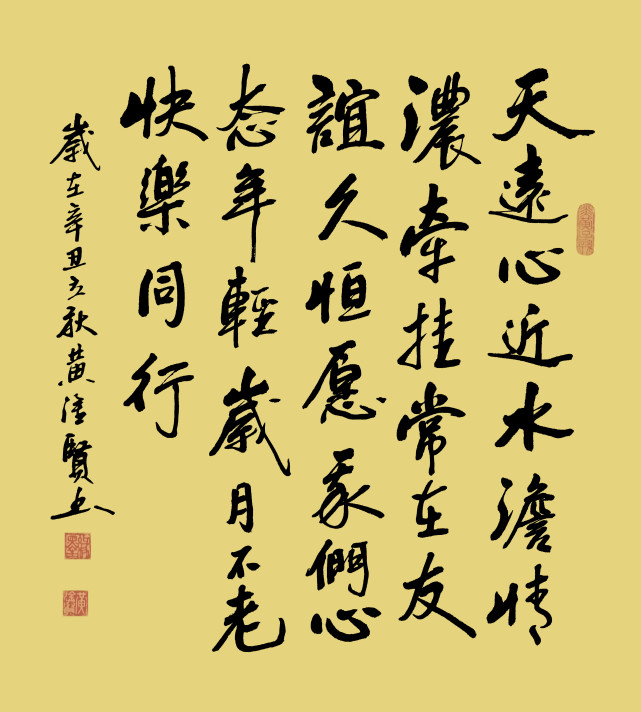 天遠心近水澹情
濃牽挂常在友
誼久恒愿我們心
态年輕歲月不老
快樂同行
歲在辛丑立秋黄賢书